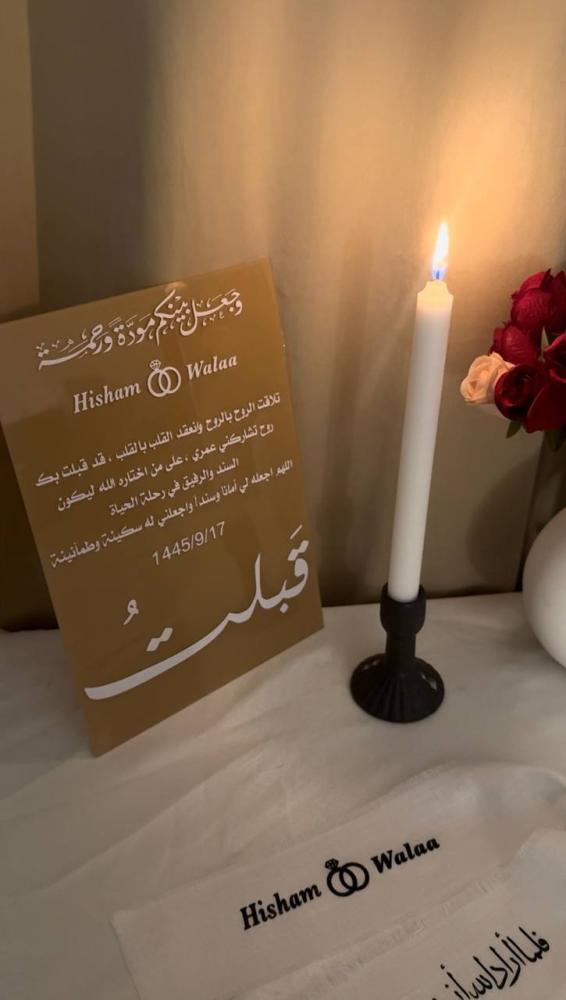 وجعل بينكم مودة ورحمة
Hisham Walaa
تلاقت الروح بالروح وانعقد القلب بالقلب ، قد قبلت بك
روح تشاركني عمري ، على من اختاره الله ليكون
السند والرفيق في رحلة الحياة
اللهم اجعله لي أمانا وسندا واجعلني له سكينة وطمأنينة
1445/9/17
قَبلتُ
Hisham Walaa
فلما أراد الله أن